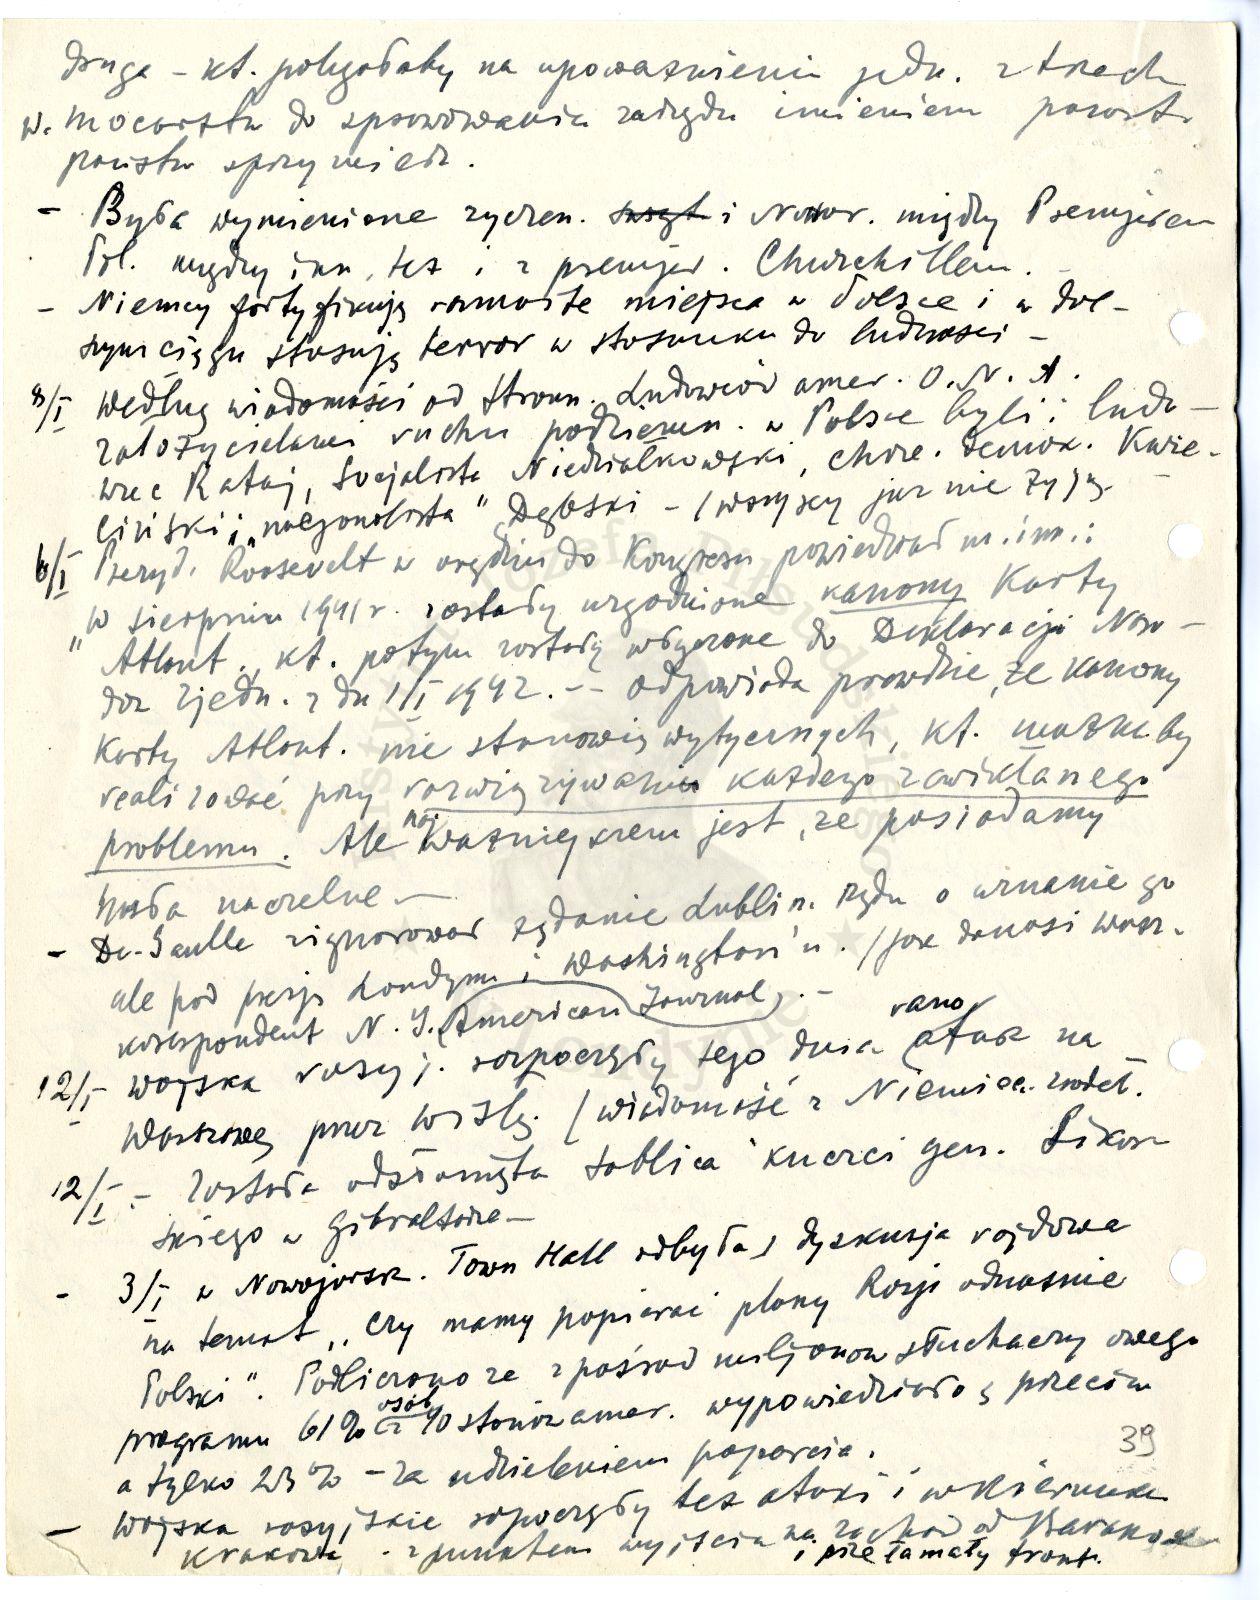 druga – kt. polegałaby na upoważnieniu jedn. z trzech
w. mocarstw do sprawowania zarządu imieniem pozost.
państw sprzymierz.
– Była wymienione życzen. i Nowor. między Premjerem
Pol. między inn. też i z premjer. Churchillem. –
– Niemcy fortyfikują rozmaite miejsca w Polsce i w dal-
szym ciągu stosują terror w stosunku do ludności –
8/I według wiadomości od Stronn. Ludowców amer. O.N.A.
założycielami ruchu podziemn. w Polsce byli: ludo-
wiec Rataj, Socjalista Niedziałkowski, chrze. demok. Kwie-
ciński i „nacjonalista" Dębski – (wszyscy już nie żyją
6/I Prezyd. Roosevelt w orędziu do Kongresu powiedział m. inn.:
"W sierpniu 1941 r. zostały uzgodnione kanony Karty
Atlant., kt. potym zostały włączone do Deklaracji Naro-
dów Zjedn. z dn 1/I 1942. – – odpowiada prawdzie, że kanony
Karty Atlant. nie stanowią wytycznych, kt. można by
realizować przy rozwiązywaniu każdego zawikłanego
problemu. Ale najważniejszem jest, że posiadamy
hasła naczelne –
– De-Gaulle zignorował żądanie Lublin. rządu o uznanie go
ale pod presją Londynu i Washington'u. / jak donosi wasz.
korespondent N. J. American Journal. –
12/I wojska rosyj. rozpoczęły tego dnia rano atak na
Warszawę przez Wisłę. / wiadomość z Niemiec. źródeł.
12/I. – Została odsłonięta tablica ku czci gen. Sikor-
skiego w Gibraltarze –
– 3/I w Nowojorsk. Town Hall odbyła s dyskusja radjowa
na temat „czy mamy popierać plany Rosji odnośnie
Polski". Podliczono że z pośród miljonów słuchaczy owego
programu 61% osób z 40 stanów amer. wypowiedziało ę przeciw
a tylko 23% – za udzieleniem poparcia.
39
– Wojska rosyjskie rozpoczęły też ataki i w kierunku
Krakowa – z punktem wyjścia na zachód od Baranowa
i przełamały front.